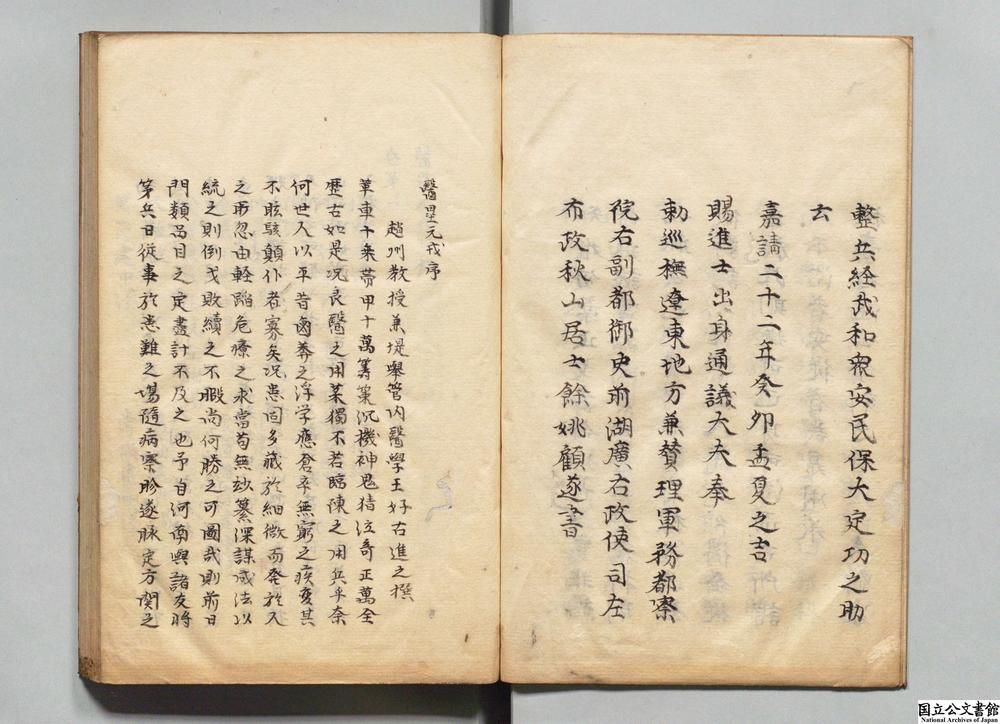 整兵経武和衆安民保大定功之助
云
嘉請二十二年癸卯孟夏之吉
賜進士出身通議大夫奉
勅巡撫遼東地方兼賛理軍務都察
院右副都御史前湖廣右政使司左
布政秋山居士餘姚顧遂書
醫壘元戎序
趙州教授兼堤舉管内醫學王好古進之撰
革車千乗帯甲十萬籌策沉機神鬼猜泣奇正萬全
歴古如是况良醫之用薬獨不若臨陳之用兵乎奈
何世人以平昔鹵莽之浮学應倉卒無窮之疾変其
不眩駭顛仆者寡矣况患固多藏於細微而發於人
之所忽由軽蹈危療之求當苟無妙纂深謀成法以
統之則倒戈敗績之不暇尚何勝之可圖哉則前日
門類品目之定盡計不及之也予自河南與諸友将
第兵日従事於患難之場隨病察脉遂脉定方開之
国立公文書館
National Archives of Japan